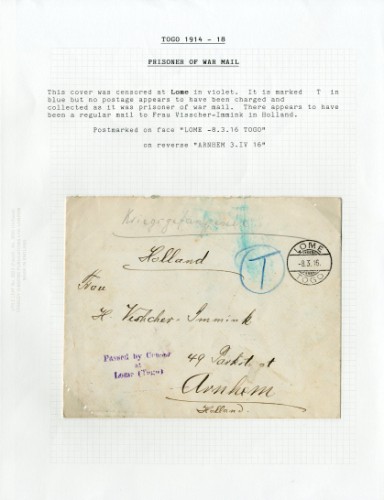 TOGO 1914 - 18
PRISONER OF WAR MAIL
This cover was censored at Lome in violet. It is marked T in
blue but no postage appears to have been charged and
collected as it was prisoner of war mail. There appears to have
been a regular mail to Frau Visscher-Immink in Holland.
Postmarked on face "LOME -8.3.16 TOGO"
on reverse "ARNHEM 3.IV 16"
Holland
T
LOME
-8.3.16.
TOGO
Frau
H Visscher-Immink
Passed by Censor
at
Lome (Togo)
49 Parkstraat
Arnhem
Holland.